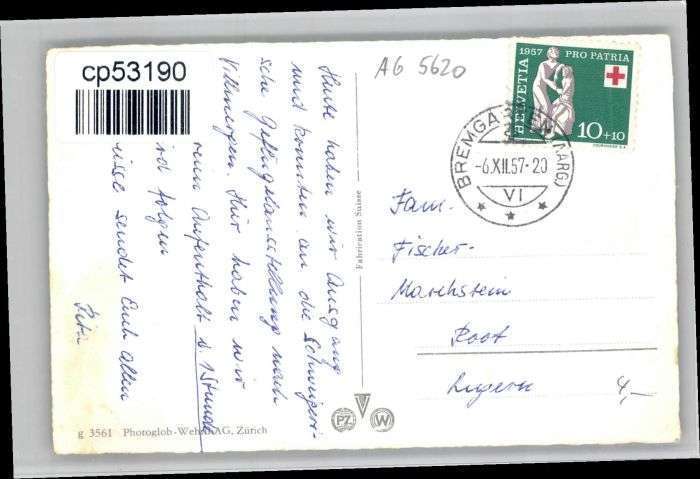 cp53190
AG 5620
1957 PRO PATRIA
HELVETIA
10+10
BREMGARTEN (AARG)
-6.XII.57-20
VI
Heute haben wir Ausgang
und konnten an die Schweizeri-
sche Geflügelausstellung nach
Villmergen. Hier haben wir
nun Aufenthalt v. 1 Stunde
folgen
sendet Euch allen
Fam.
Fischer-
Marchstein
Root
Luzern
4,-
Fabrication Suisse
PZ W
g 3561 Photoglob-Wehrli AG, Zürich